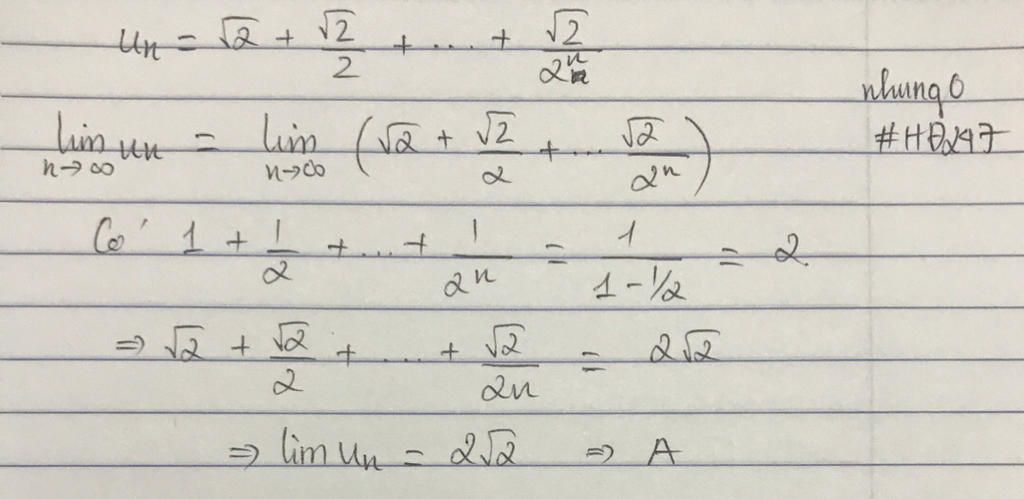 uₙ = √2 + √2/2 + .... + √2/2ⁿ
nhungO
#HĐ247
lim n→∞ uₙ = lim n→∞ (√2 + √2/2 + ... √2/2ⁿ)
Có 1 + 1/2 + ... + 1/2ⁿ = 1/(1-1/2) = 2
⇒ √2 + √2/2 + .... + √2/2n = 2√2
⇒ lim uₙ = 2√2 ⇒ A